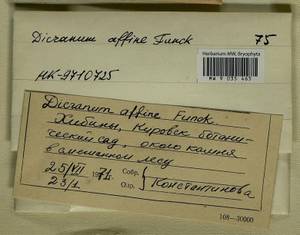 Dicranum affine Funck 75
Herbarium MW, Bryophyta
MW 9 035 463
НК-9710725
Dicranum affine Funck
Хибины, Кировск ботани-
ческий сад, около камня
в смешанном лесу
25/VII 1971.
23/1
Собр.
Опр.
Константинова
108—30000